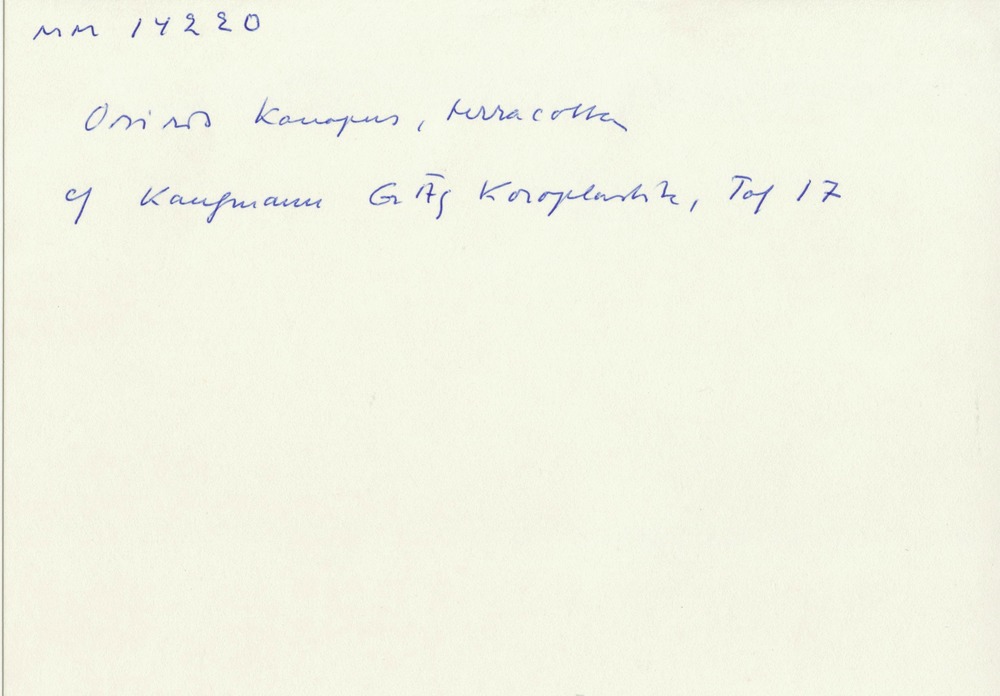 MM 14220
Osiris Kanopus, terracotta
cf Kaufmann Gr Äg Koroplastik, Taf 17